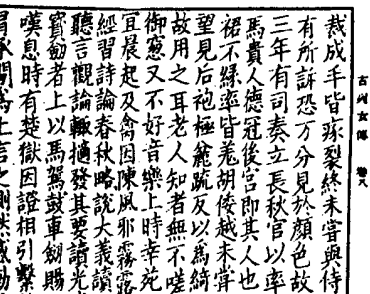 古列女傳 卷八
裁成手皆瘃裂終未嘗與侍
有所訴恐万分見於顏色故
三年有司奏立長秋宮以率
馬貴人德冠後宮即其人也
裙不緣率皆羌胡倭越未嘗
望見后袍極麄疏反以為綺
故用之耳老人知者無不嗟
御窓又不好音樂上時幸苑
宜晨起及禽因陳風邪霧露
經習詩論春秋略說大義讀
聽言觀論輒摘發其要讀光
寳劒者上以馬駕鼓車劒賜
嘆息時有楚獄因證相引繫
承間為上言之惻然感動